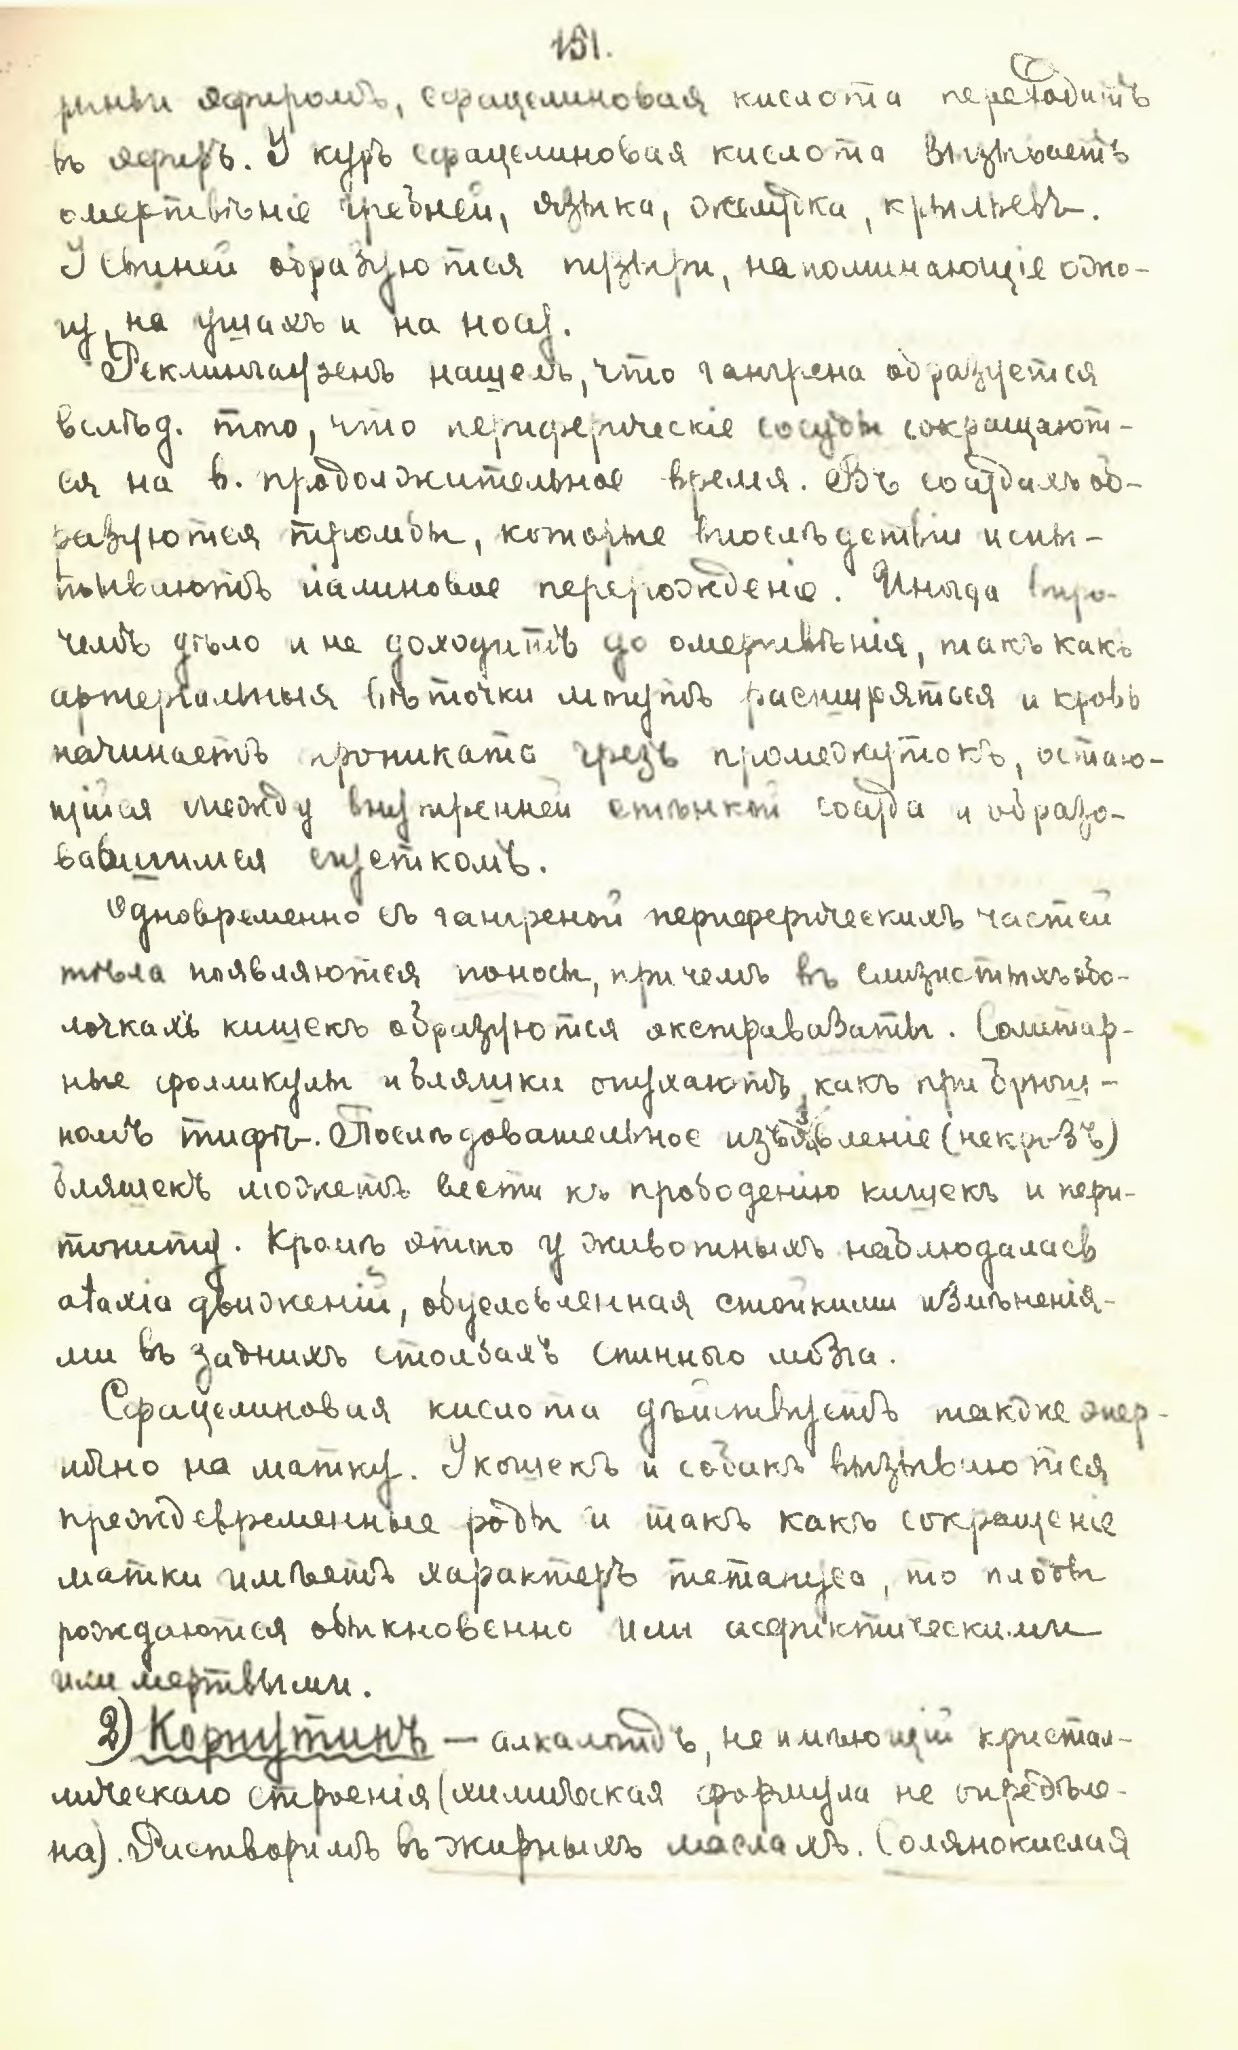 151.
рыньи эфиромъ, сфацелиновая кислота переходитъ
въ эфиръ. У куръ сфацелиновая кислота вызываетъ
омертвѣніе гребней, языка, желудка, крыльевъ.
У свиней образуются пузыри, напоминающіе ожо-
гу, на ушахъ и на носу.
Реклингаузенъ нашелъ, что гангрена образуется
вслѣд. того, что периферическіе сосуды сокращают-
ся на в. продолжительное время. Въ сосудахъ об-
разуются тромбы, которые впослѣдствіи испы-
тываютъ гіалиновое перерожденіе. Иногда впро-
чемъ дѣло и не доходитъ до омертвѣнія, такъ какъ
артеріальныя вѣточки могутъ расширяться и кровь
начинаетъ проникать чрезъ промежутокъ, остаю-
щійся между внутренней стѣнкой сосуда и образо-
вавшимся сгусткомъ.
Одновременно съ гангреной периферическихъ частей
тѣла появляются поносы, причемъ въ слизистыхъ обо-
лочкахъ кишекъ образуются экстравазаты. Солитар-
ные фолликулы и бляшки опухаютъ, какъ при брюш-
номъ тифѣ. Послѣдовательное изъязвленіе (некрозъ)
бляшекъ можетъ вести къ прободенію кишекъ и пери-
тониту. Кромѣ этого у животныхъ наблюдалась
atахіа движеній, обусловленная стойкими измѣненія-
ми въ заднихъ столбахъ спинного мозга.
Сфацелиновая кислота дѣйствуетъ также энер-
гично на матку. У кошекъ и собакъ вызываются
преждевременные роды и такъ какъ сокращеніе
матки имѣетъ характеръ тетануса, то плоды
рождаются обыкновенно или асфиктическими
или мертвыми.
2) Корнутинъ — алкалоидъ, не имѣющій кристал-
лическаго строенія (химическая формула не опредѣле-
на). Растворимъ въ жирныхъ маслахъ. Солянокислая